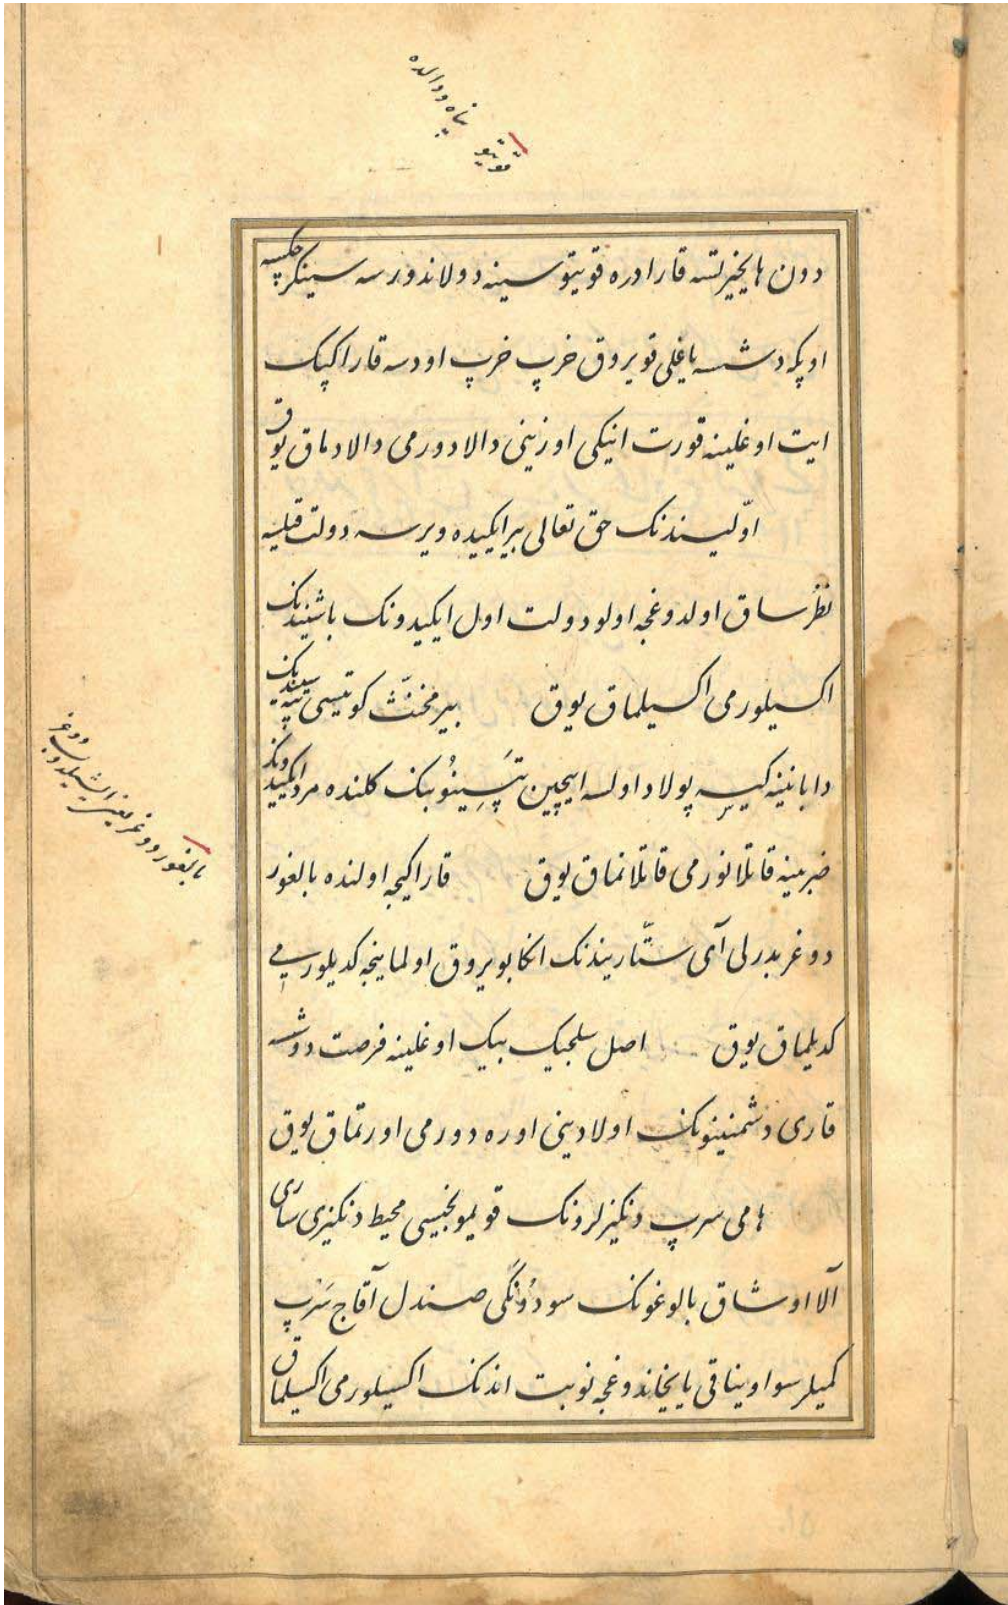 قویتو
پناه و والده
دون هایخیرتسه قارا دره قویتوسینه دولاندورسه سینکرچکسه
اوپکه دشسه یاغلی قویروق خرپ خرپ اودسه قارا کپک
ایت اوغلینه قورت انیکی اوزینی دالادورمی دالادماق یوق
اوّلیندنک حق تعالی بیر ایکیده ویرسه دولت قیلسه
نظر ساق اولدوغجه اولو دولت اول ایکیدونک باشیندنک
اکسیلورمی اکسیلماق یوق بیر مخنّث کوتیسی تپه‌سیندنک
دابانینه کییسه پولاد اولسه ایچین تپَسِینوُبنک کلنده مرد ایکیدونک
ضربینه قاتلانورمی قاتلانماق یوق قارا کیجه اولنده بالغور
دوغر بدرلی آی ستّاریندنک انکا بویروق اولماینجه کدیلورمی
کدیلماق یوق اصل سلجیک بیک اوغلینه فرصت دوشسه
قاری دشمنینونک اولادینی اوره دورمی اورتماق یوق
هامی سرپ دنکیزلرونک قویلومجیسی محیط دنکیزی ساری
آلا اوشاق بالوغونک سودوُنکَی صندل آقاج سَرپ
کمیلر سو اویناقی یایخاندوغجه نوبت اندنک اکسیلورمی اکسیلماق
بالغور دوغر یعنی ایشیلدوب دوغر